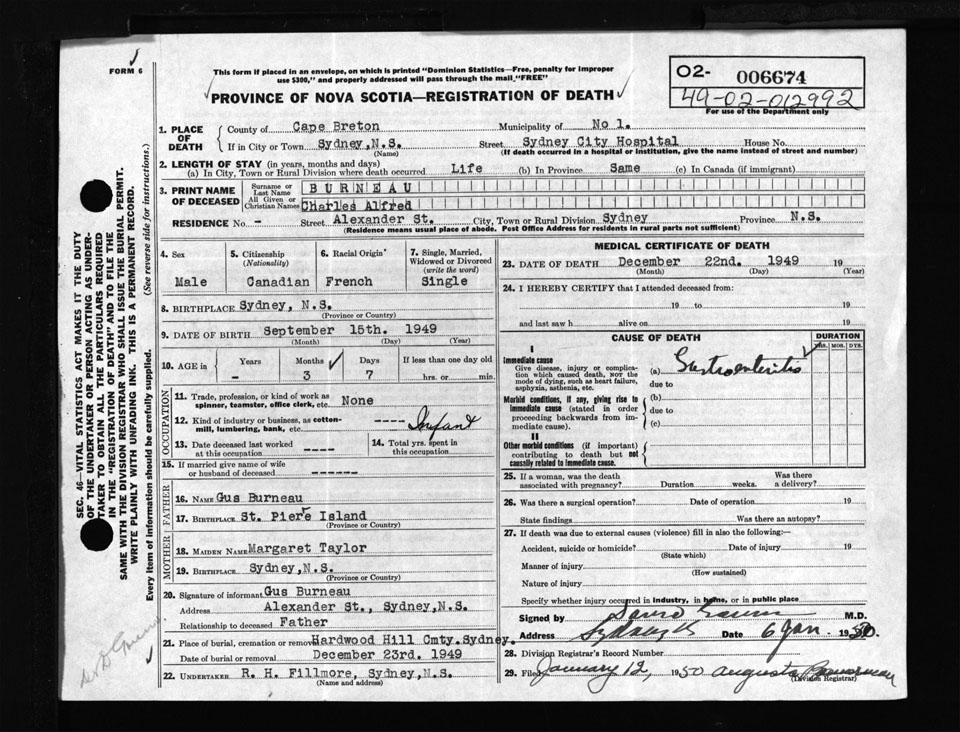 FORM 6
This form if placed in an envelope, on which is printed "Dominion Statistics—Free, penalty for improper
use $300," and properly addressed will pass through the mail "FREE"
PROVINCE OF NOVA SCOTIA—REGISTRATION OF DEATH
02- 006674
49-02-012992
For use of the Department only
1. PLACE OF DEATH
County of Cape Breton Municipality of No 1.
If in City or Town Sydney,N.S. Street Sydney City Hospital House No.
(Name) (If death occurred in a hospital or institution, give the name instead of street and number)
2. LENGTH OF STAY (in years, months and days)
(a) In City, Town or Rural Division where death occurred Life (b) In Province Same (c) In Canada (if immigrant)
3. PRINT NAME OF DECEASED
Surname or Last Name BURNEAU
All Given or Christian Names Charles Alfred
RESIDENCE No. - Street Alexander St. City, Town or Rural Division Sydney Province N.S.
(Residence means usual place of abode. Post Office Address for residents in rural parts not sufficient)
4. Sex Male
5. Citizenship (Nationality) Canadian
6. Racial Origin French
7. Single, Married, Widowed or Divorced (write the word) Single
8. BIRTHPLACE Sydney, N.S.
(Province or Country)
9. DATE OF BIRTH September 15th. 1949
(Month) (Day) (Year)
10. AGE in Years Months Days If less than one day old
- 3 7 hrs. or min.
OCCUPATION
11. Trade, profession, or kind of work as
spinner, teamster, office clerk, etc. None
12. Kind of industry or business, as cotton-
mill, lumbering, bank, etc. ---- Infant
13. Date deceased last worked
at this occupation -----
14. Total yrs. spent in
this occupation ----
15. If married give name of wife
or husband of deceased -----
FATHER
16. NAME Gus Burneau
17. BIRTHPLACE St. Pierr Island
(Province or Country)
MOTHER
18. MAIDEN NAME Margaret Taylor
19. BIRTHPLACE Sydney,N.S.
(Province or Country)
20. Signature of informant Gus Burneau
Address Alexander St., Sydney,N.S.
Relationship to deceased Father
21. Place of burial, cremation or removal Hardwood Hill Cmty.Sydney.
Date of burial or removal December 23rd. 1949
22. UNDERTAKER R. H. Fillmore, Sydney,N.S.
(Name and address)
MEDICAL CERTIFICATE OF DEATH
23. DATE OF DEATH December 22nd. 1949 19
(Month) (Day) (Year)
24. I HEREBY CERTIFY that I attended deceased from:
19 to 19
and last saw h alive on 19
CAUSE OF DEATH DURATION
YRS. MOS. DYS.
I
Immediate cause
Give disease, injury or complica-
tion which caused death, NOT the
mode of dying, such as heart failure,
asphyxia, asthenia, etc.
(a) Gastroenteritis
due to
Morbid conditions, if any, giving rise to
immediate cause (stated in order
proceeding backwards from im-
mediate cause).
(b)
due to
(c)
II
Other morbid conditions (if important)
contributing to death but not
causally related to immediate cause.
25. If a woman, was the death
associated with pregnancy? Duration weeks. Was there
a delivery?
26. Was there a surgical operation? Date of operation 19
State findings Was there an autopsy?
27. If death was due to external causes (violence) fill in also the following:—
Accident, suicide or homicide? Date of injury 19
(State which)
Manner of injury
(How sustained)
Nature of injury
Specify whether injury occurred in industry, in home, or in public place
Signed by M.D.
Address Sydney Date 6 Jan. 1950.
28. Division Registrar's Record Number
29. Filed January 12, 1950 Augusta
(Division Registrar)
SEC. 46—VITAL STATISTICS ACT MAKES IT THE DUTY
OF THE UNDERTAKER OR PERSON ACTING AS UNDER-
TAKER TO OBTAIN ALL THE PARTICULARS REQUIRED
IN THE "REGISTRATION OF DEATH" AND TO FILE THE
SAME WITH THE DIVISION REGISTRAR WHO SHALL ISSUE THE BURIAL PERMIT.
WRITE PLAINLY WITH UNFADING INK. THIS IS A PERMANENT RECORD.
Every item of information should be carefully supplied. (See reverse side for instructions.)